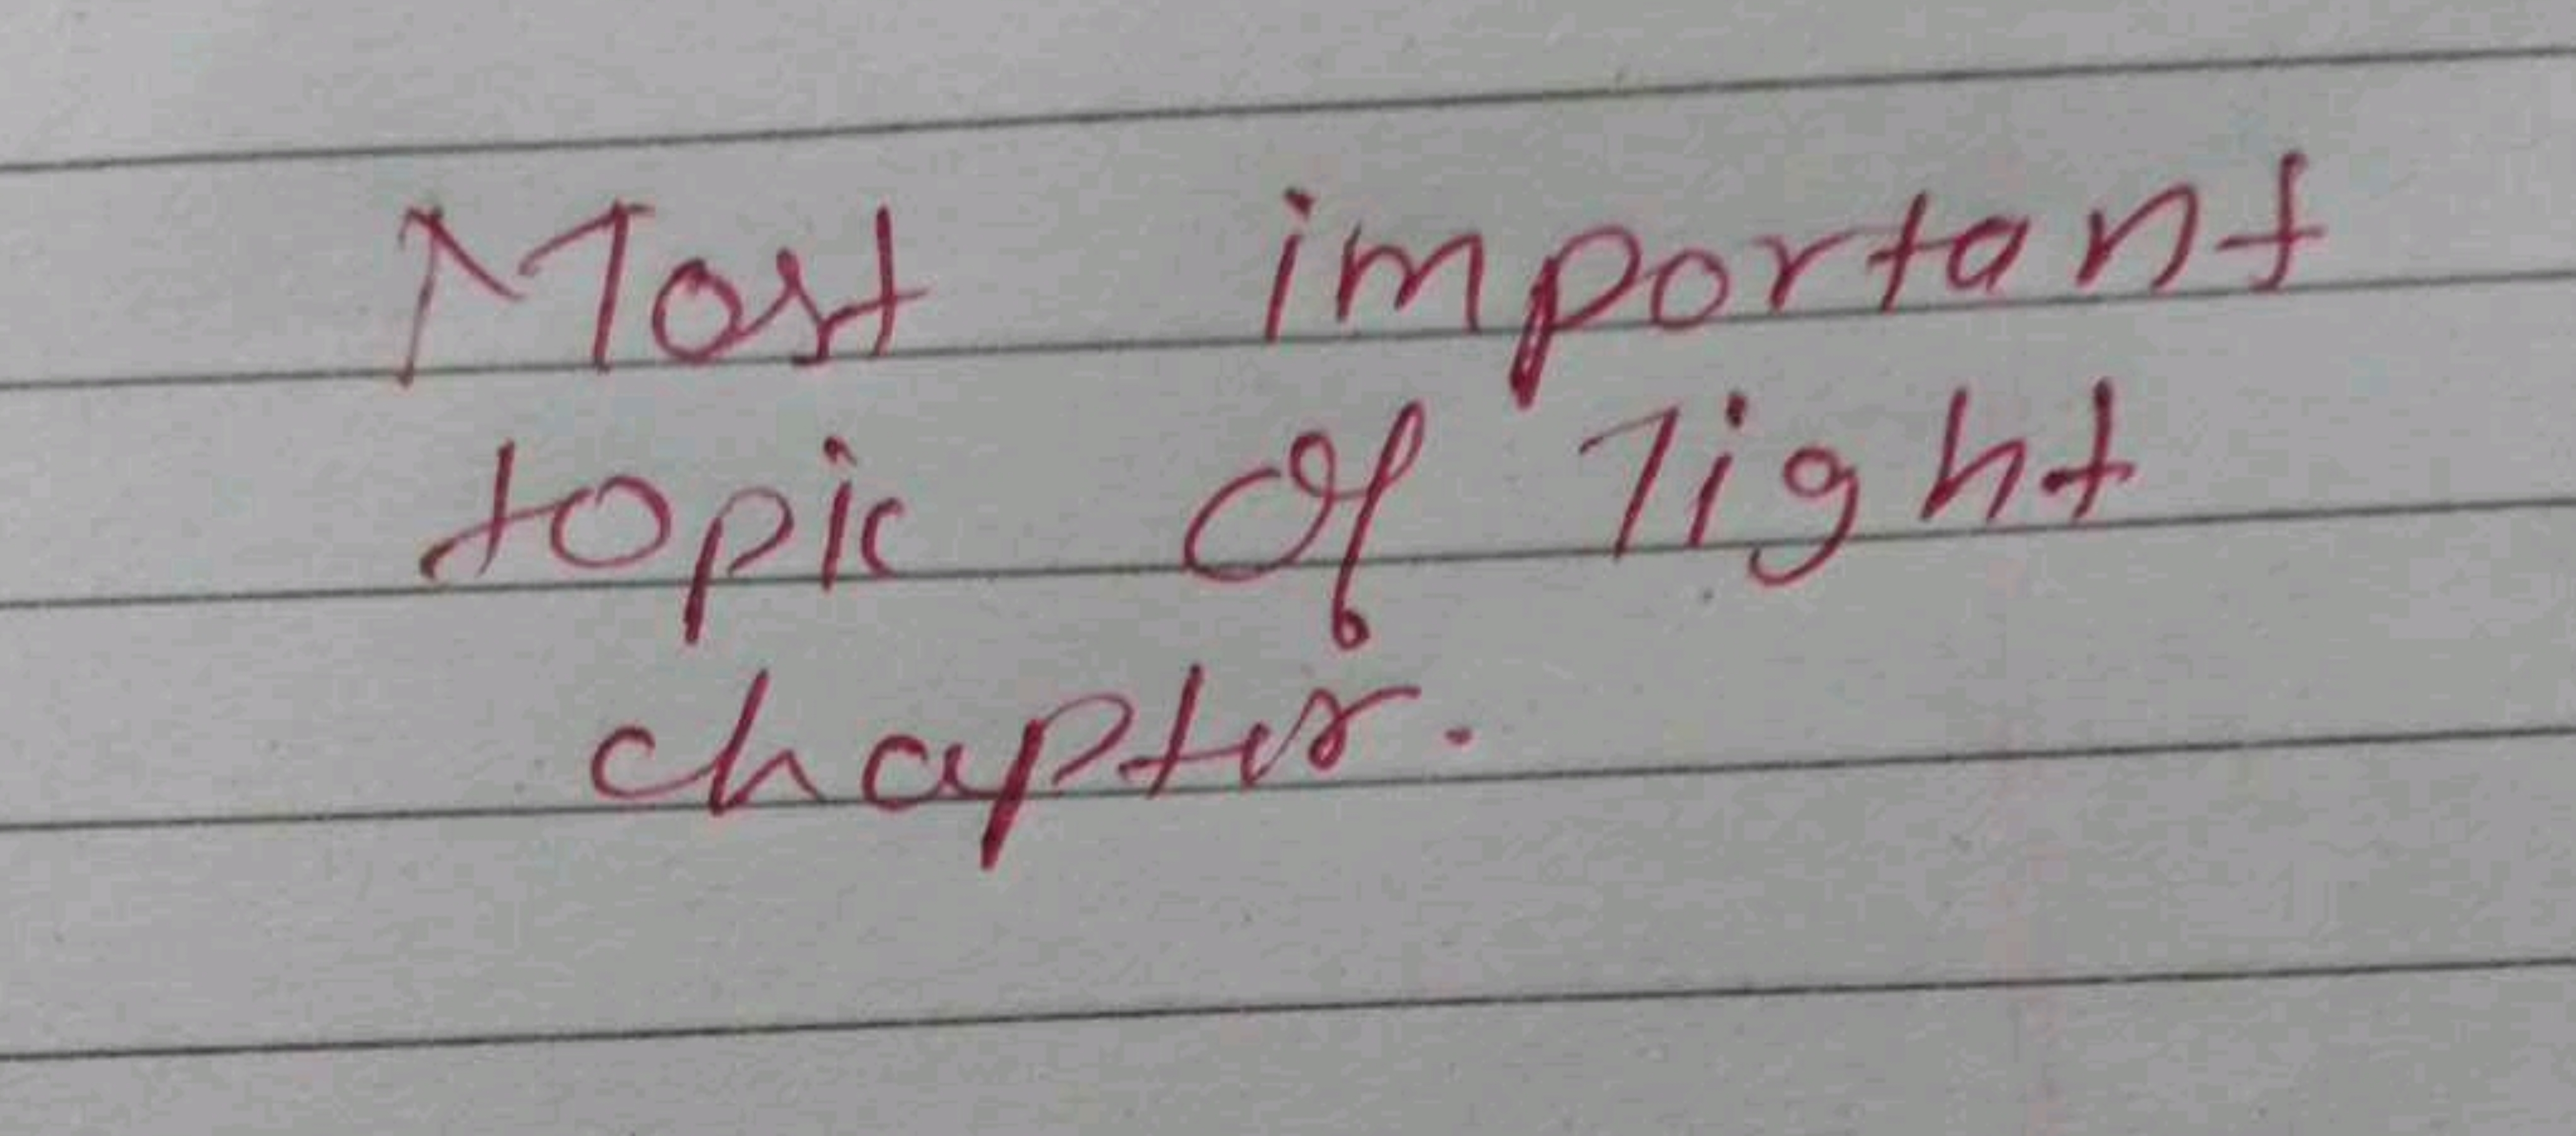 Most important
topic of light
chapter.